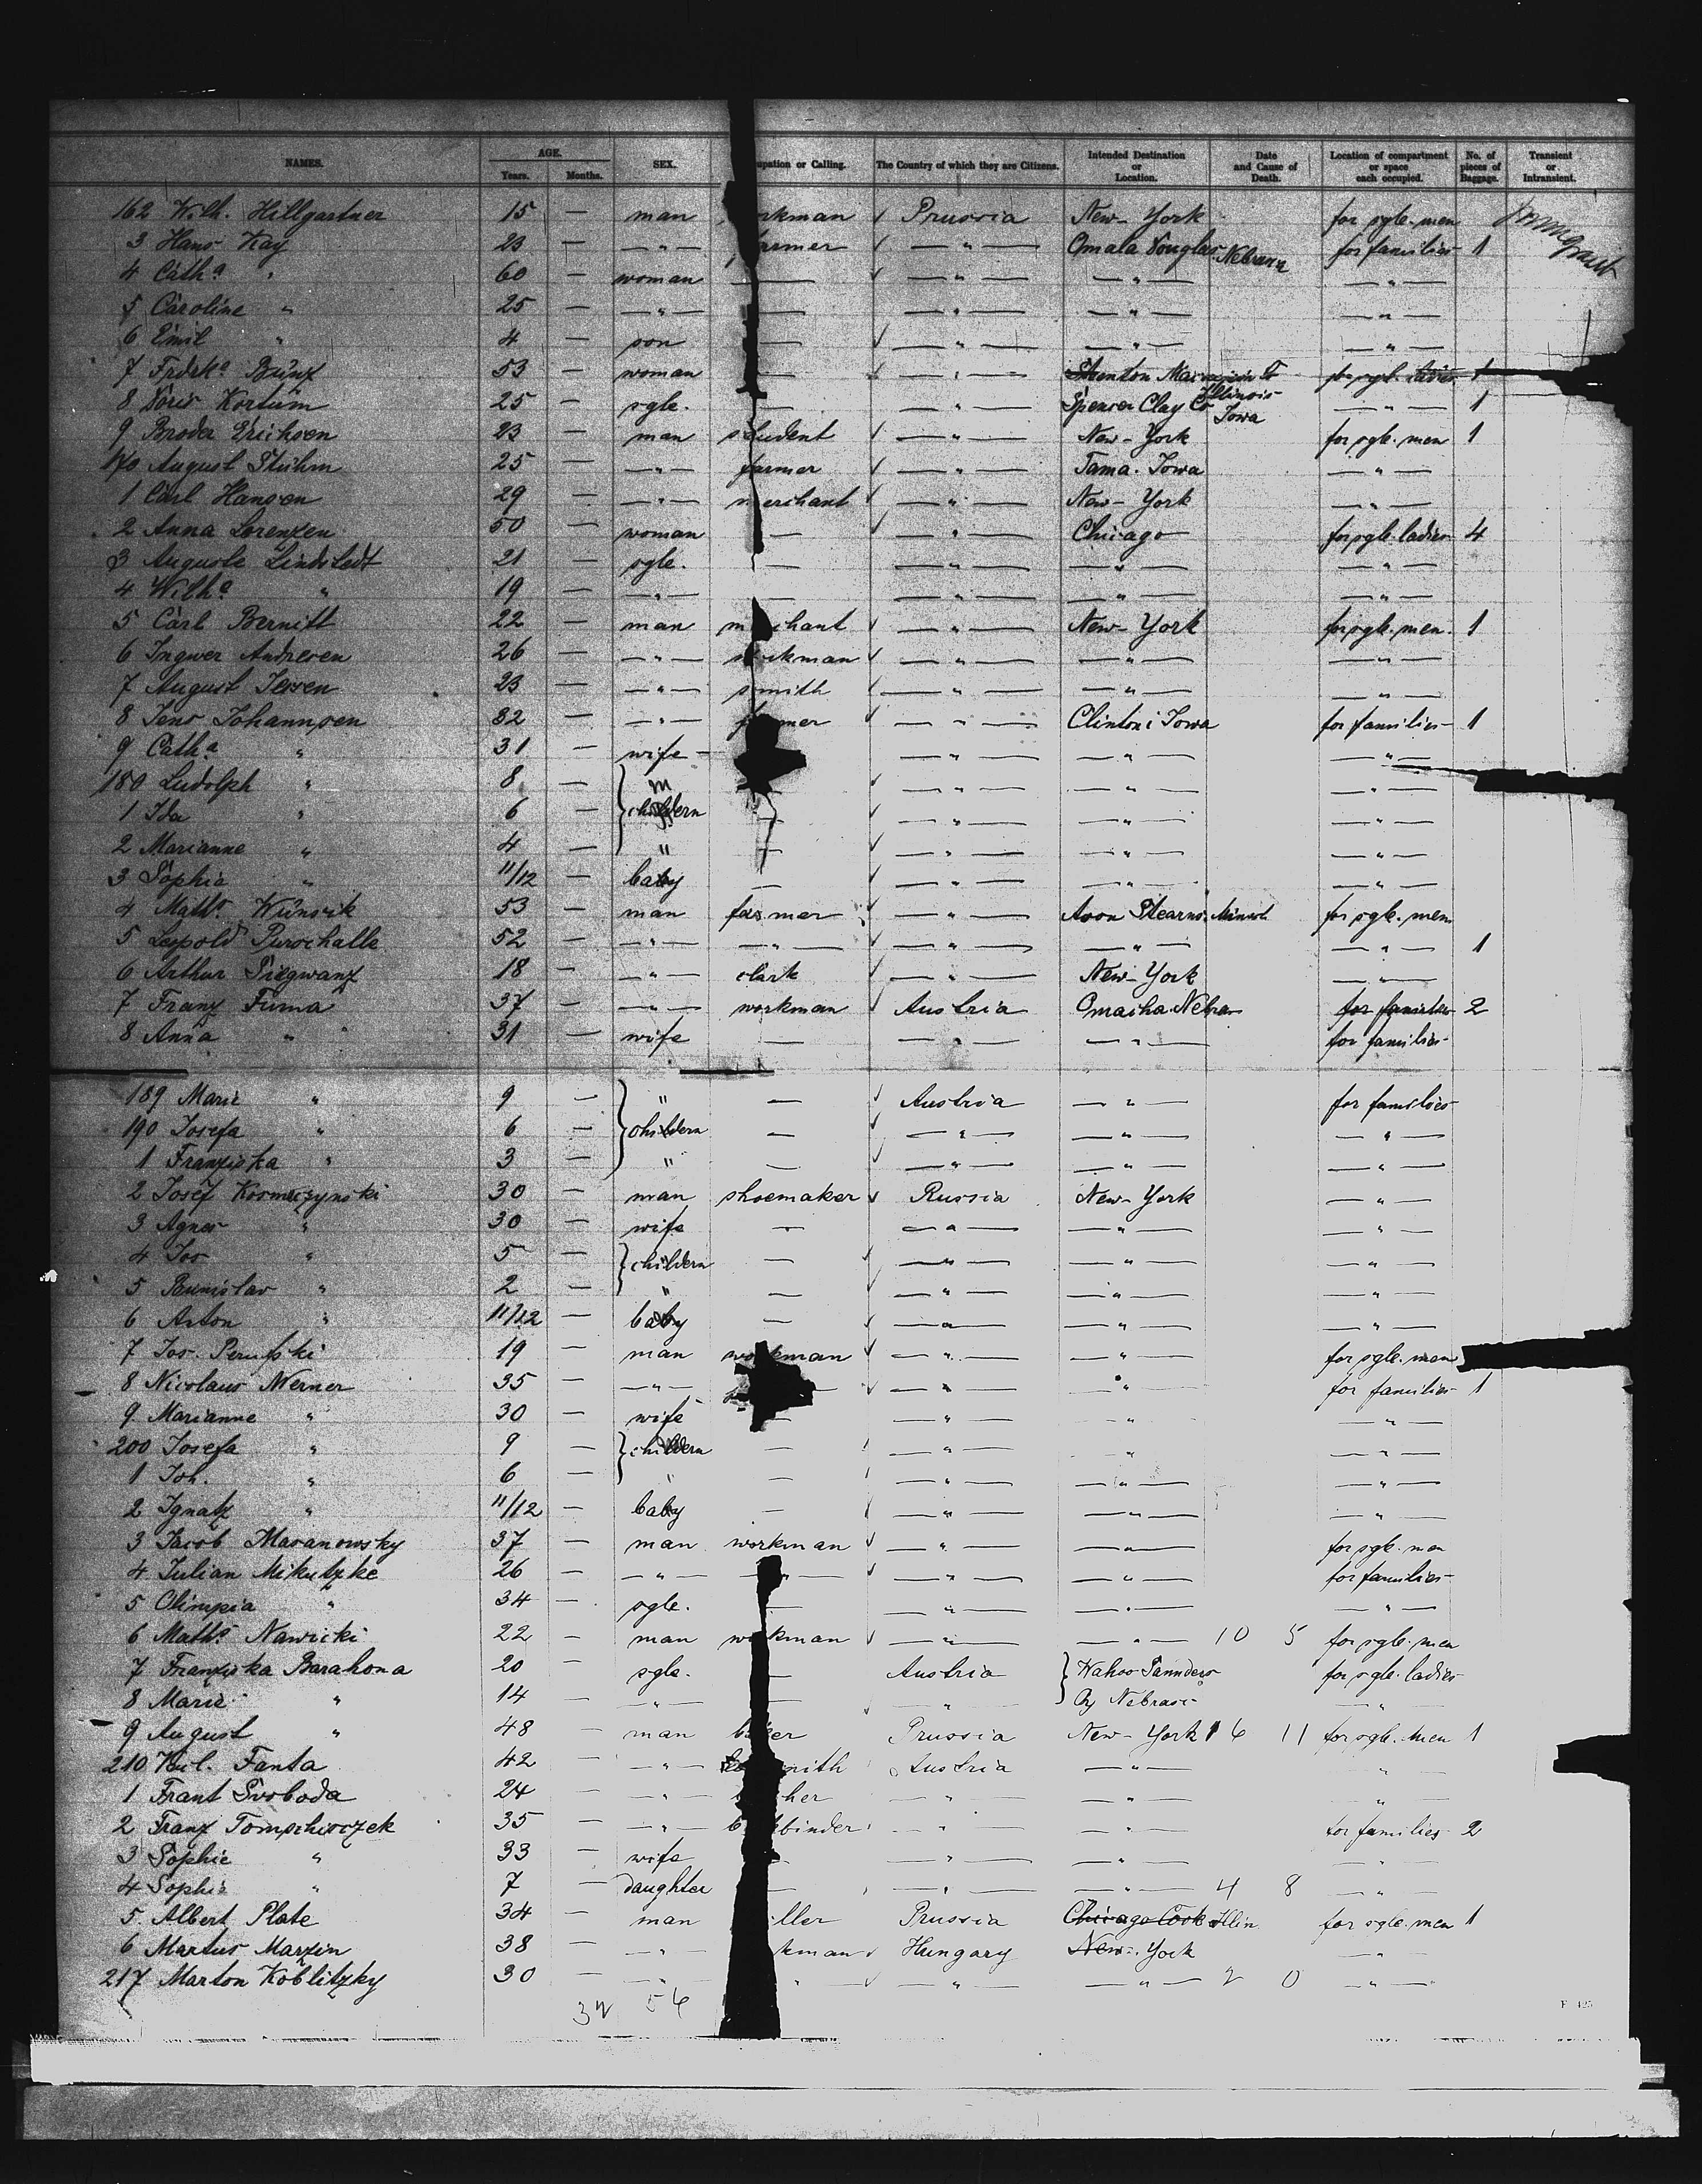 NAMES. AGE. Years. Months. SEX. upation or Calling. The Country of which they are Citizens. Intended Destination or Location. Date and Cause of Death. Location of compartment or space each occupied. No. of pieces of Baggage. Transient or Intransient.
162 Wilh. Hillgartner 15 — man rkman Prussia New-York for sgle. men
3 Hans Kay 23 — —"— armer —"— Omala Douglas Nebrasn for families 1
4 Cath.a " 60 — woman — —"— —"— —"—
5 Caroline " 25 — —"— — —"— —"— —"—
6 Emil " 4 — son — —"— —"— —"—
7 Fredk.a Bünz 53 — woman — —"— for sgl. ladies 1
8 Doris Kortüm 25 — sgle. — —"— Spenser Clay Co Iowa —"— 1
9 Broder Erichsen 23 — man student —"— New-York for sgle. men 1
170 August Stühm 25 — —"— farmer —"— Tama. Iowa —"—
1 Carl Hansen 29 — —"— merchant —"— New-York —"—
2 Anna Lorenzen 50 — woman — —"— Chicago for sgle. ladies 4
3 Auguste Lindstedt 21 — sgle. — —"— —"— —"—
4 Wilh.a " 19 — —"— — —"— —"— —"—
5 Carl Bernitt 22 — man m chant —"— New-York for sgle. men. 1
6 Ingwer Andresen 26 — —"— kman —"— —"— —"—
7 August Jessen 23 — —"— smith —"— —"— —"—
8 Jens Johannsen 32 — —"— f mer —"— Clinton i Iowa for families 1
9 Cath.a " 31 — wife — —"— —"— —"—
180 Ludolph " 8 — m —"— —"— —"—
1 Ida " 6 — childern — —"— —"— —"—
2 Marianne " 4 — " — —"— —"— —"—
3 Sophia " 11/12 — baby — —"— —"— —"—
4 Math.s Wünsik 53 — man farmer —"— Avon Stearns. Minsot for sgle. men
5 Leopold Purschalle 52 — —"— —"— —"— —"— —"— 1
6 Arthur Siegwanz 18 — —"— clark —"— New-York —"—
7 Franz Fuma 37 — —"— workman Austria Omaiha Nebra for families 2
8 Anna " 31 — wife — —"— —"— for families
189 Marie " 9 — " — Austria —"— for families
190 Josefa " 6 — childern — —"— —"— —"—
1 Franziska " 3 — " — —"— —"— —"—
2 Josef Kosmuzynski 30 — man shoemaker Russia New-York —"—
3 Agnes " 30 — wife — —"— —"— —"—
4 Jos " 5 — childern — —"— —"— —"—
5 " 2 — " — —"— —"— —"—
6 Anton " 11/12 — baby — —"— —"— —"—
7 Jos. 19 — man wo kman —"— —"— for sgle. men
8 Nicolaus Werner 35 — —"— —"— —"— for families 1
9 Marianne " 30 — wife — —"— —"— —"—
200 Josefa " 9 — childern — —"— —"— —"—
1 Joh. " 6 — " — —"— —"— —"—
2 Ignatz " 11/12 — baby — —"— —"— —"—
3 Jacob Masanowsky 37 — man workman —"— —"— for sgle. men
4 Julian Mikutzke 26 — —"— —"— —"— —"— for families
5 Olimpia " 34 — sgle. — —"— —"— —"—
6 Math.s Nawicki 22 — man wo kman —"— —"— 10 5 for sgle. men
7 Franziska Barahona 20 — sgle. — Austria Wahoo Saunders for sgle. ladies
8 Marie " 14 — —"— — —"— Cy Nebras —"—
9 August " 48 — man b er Prussia New-York 16 11 for sgle. men 1
210 Fanta 42 — —"— mith Austria —"— "
1 Frant Svoboda 24 — —"— her —"— —"— —"—
2 Franz Tompschoczek 35 — —"— b kbinder —"— —"— for families 2
3 Sophie " 33 — wife — —"— —"— —"—
4 Sophie " 7 — daughter — —"— —"— 4 8 —"—
5 Albert Plate 34 — man ller Prussia Chicago Cook Illin for sgle. men 1
6 Martus Marzin 38 — —"— kman Hungary New-York —"—
217 Marton Koblitzky 30 — —"— " —"— —"— 2 0 —"—
34 56